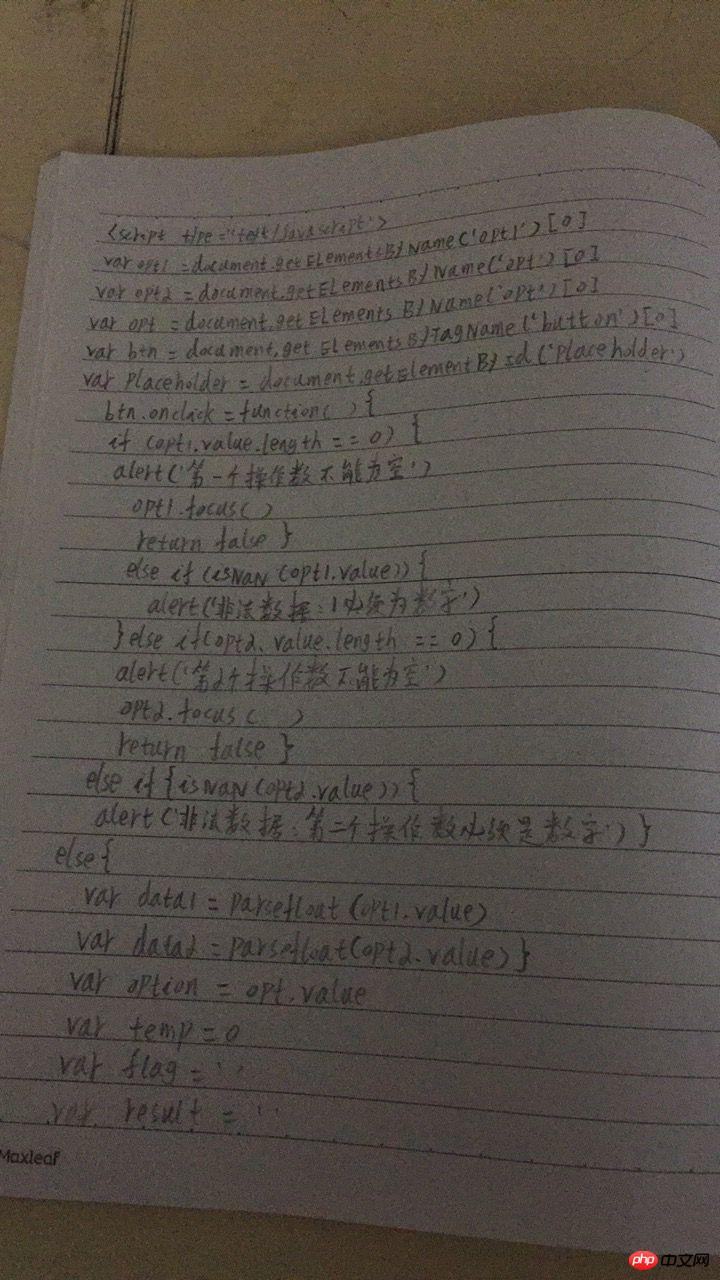 <script type="text/javascript">
var opt1 = document.getElementsByName('opt1')[0]
var opt2 = document.getElementsByName('opt')[0]
var opt = document.getElementsByName('opt')[0]
var btn = document.getElementsByTagName('button')[0]
var Placeholder = document.getElementById('Placeholder')
btn.onclick = function( ) {
if (opt1.value.length == 0) {
alert('第一个操作数不能为空')
opt1.focus( )
return false }
else if (isNaN (opt1.value)) {
alert('非法数据:1必须为数字')
} else if(opt2.value.length == 0) {
alert('第2个操作数不能为空')
opt2.focus( )
return false }
else if {isNaN (opt2.value)) {
alert('非法数据:第二个操作数必须是数字') }
else {
var data1 = parsefloat (opt1.value)
var data2 = parsefloat(opt2.value) }
var option = opt.value
var temp = 0
var flag = ' '
var result = ' '
Maxleaf
php 中文网